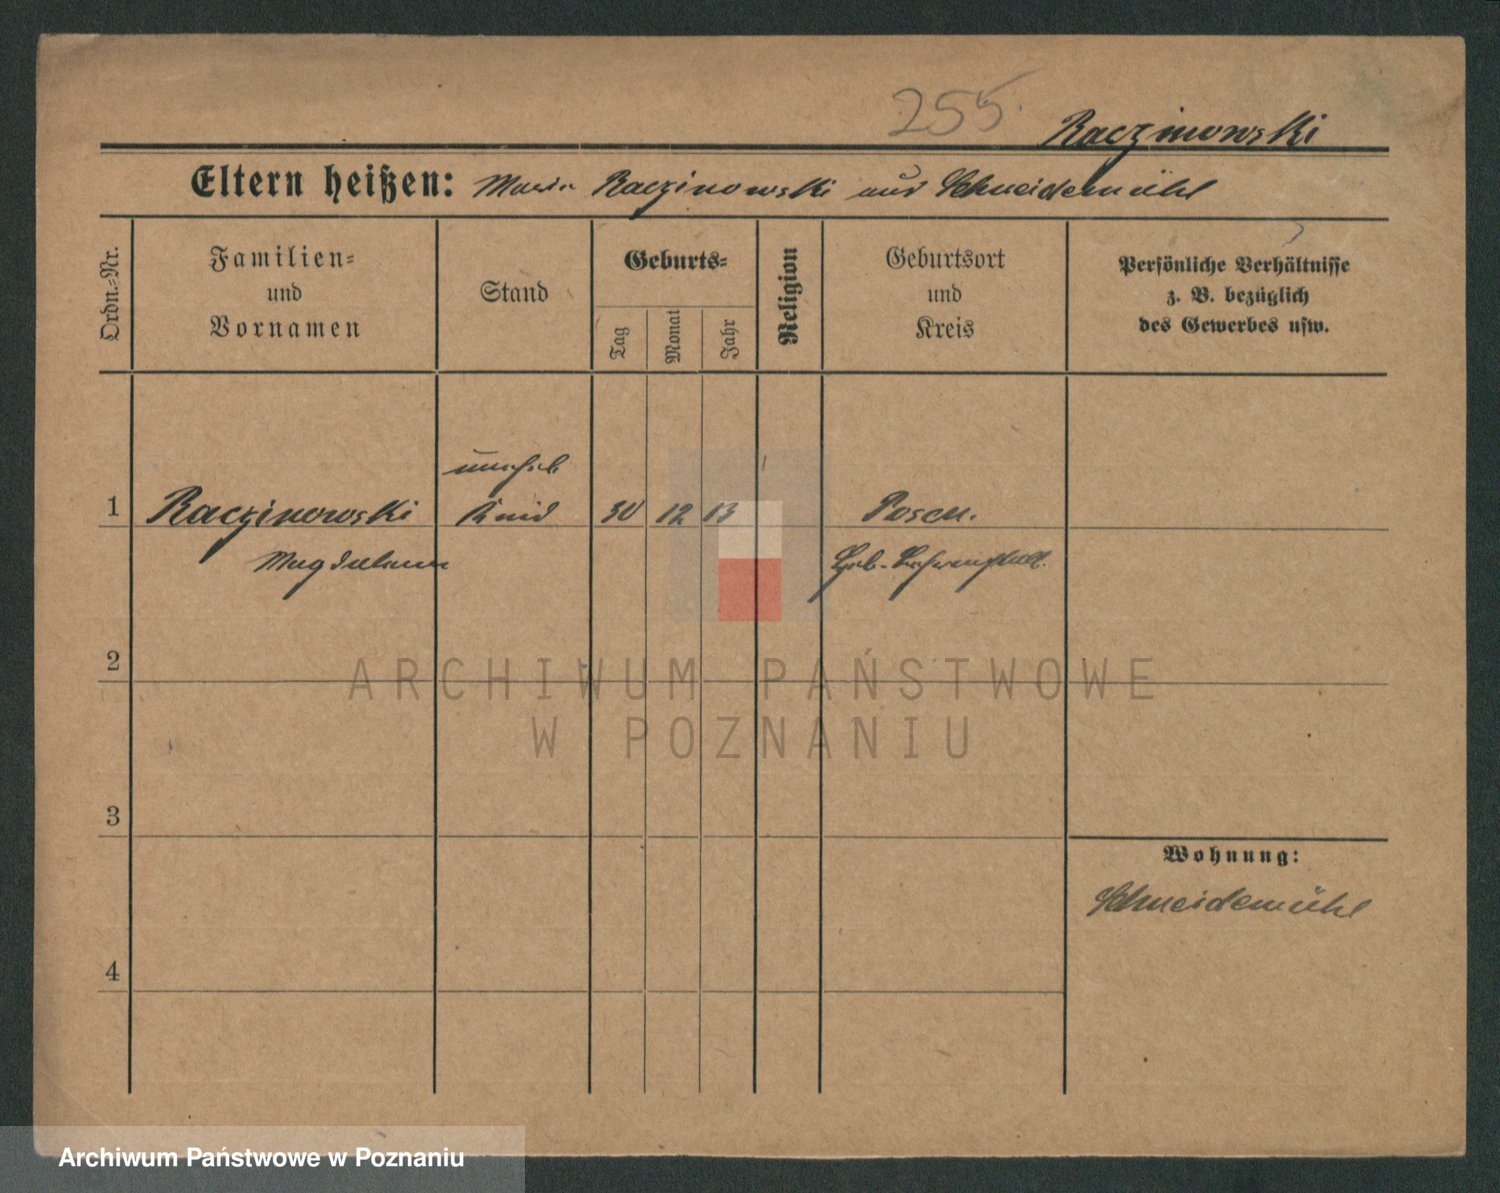 255.
Raczinowski
Eltern heißen: Maria Raczinowski aus Schneidemühl
Ordn.-Nr.
Familien-
und
Vornamen
Stand
Geburts-
Tag
Monat
Jahr
Religion
Geburtsort
und
Kreis
Persönliche Verhältnisse
z. B. bezüglich
des Gewerbes usw.
unehel.
1 Raczinowski Kind 30 12 13 Posen.
Magdalena
2
3
4
Wohnung:
Schneidemühl
ARCHIWUM PAŃSTWOWE
W POZNANIU
Archiwum Państwowe w Poznaniu